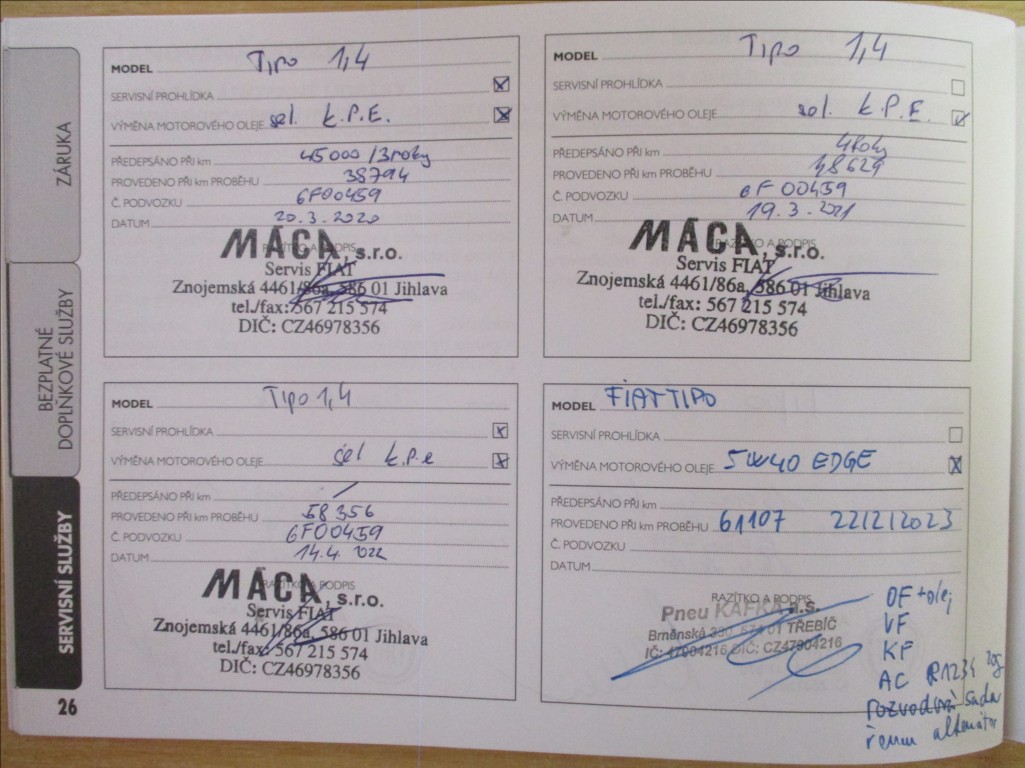 ZÁRUKA
BEZPLATNÉ
DOPLŇKOVÉ SLUŽBY
SERVISNÍ SLUŽBY
MODEL Tipo 1,4
SERVISNÍ PROHLÍDKA
VÝMĚNA MOTOROVÉHO OLEJE sel. K.P.E.
PŘEDEPSÁNO PŘI km 45000 / 3 roky
PROVEDENO PŘI km PROBĚHU 38794
Č. PODVOZKU 6F00459
DATUM 20.3.2020
RAZÍTKO A PODPIS
MÁCA, s.r.o.
Servis FIAT
Znojemská 4461/86a, 586 01 Jihlava
tel./fax: 567 215 574
DIČ: CZ46978356
MODEL Tipo 1,4
SERVISNÍ PROHLÍDKA
VÝMĚNA MOTOROVÉHO OLEJE sel. K.P.E.
PŘEDEPSÁNO PŘI km 4 Roky
PROVEDENO PŘI km PROBĚHU 48629
Č. PODVOZKU 6F00459
DATUM 19.3.2021
RAZÍTKO A PODPIS
MÁCA, s.r.o.
Servis FIAT
Znojemská 4461/86a, 586 01 Jihlava
tel./fax: 567 215 574
DIČ: CZ46978356
MODEL Tipo 1,4
SERVISNÍ PROHLÍDKA
VÝMĚNA MOTOROVÉHO OLEJE sel K.P.e
PŘEDEPSÁNO PŘI km /
PROVEDENO PŘI km PROBĚHU 58356
Č. PODVOZKU 6F00459
DATUM 14.4.2022
RAZÍTKO A PODPIS
MÁCA, s.r.o.
Servis FIAT
Znojemská 4461/86a, 586 01 Jihlava
tel./fax: 567 215 574
DIČ: CZ46978356
MODEL FIAT TIPO
SERVISNÍ PROHLÍDKA
VÝMĚNA MOTOROVÉHO OLEJE 5W40 EDGE
PŘEDEPSÁNO PŘI km
PROVEDENO PŘI km PROBĚHU 61107 22/2/2023
Č. PODVOZKU
DATUM
RAZÍTKO A PODPIS
Pneu KAFKA a.s.
Brněnská 330, 674 01 TŘEBÍČ
IČ: 47904216 DIČ: CZ47904216
OF + olej
VF
KF
AC R1234
rozvodová sada
řemen alternátor
26